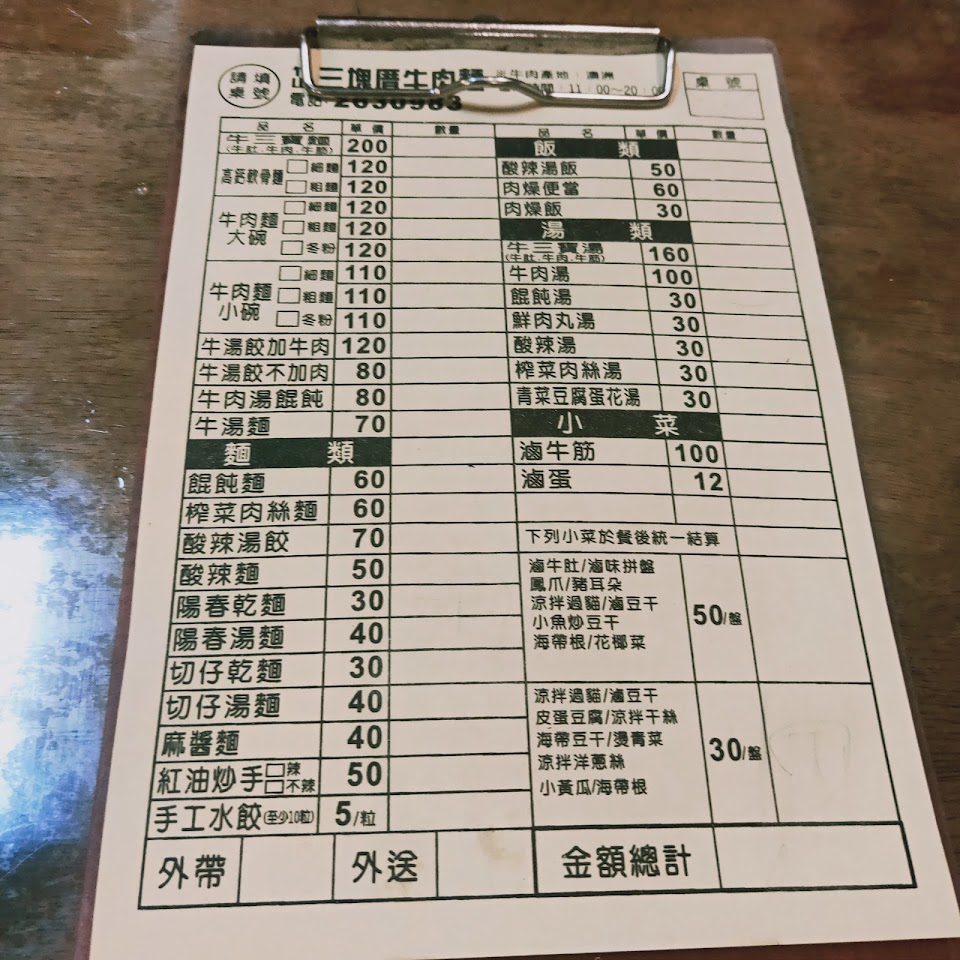 請填
桌號
三塊厝牛肉麵
牛肉產地：澳洲
電話：2630983
11：00~20：0
桌號
品名 單價 數量
牛三寶麵 200
(牛肚、牛肉、牛筋)
高鈣軟骨麵 細麵 120
粗麵 120
牛肉麵 大碗 細麵 120
粗麵 120
冬粉 120
牛肉麵 小碗 細麵 110
粗麵 110
冬粉 110
牛湯餃加牛肉 120
牛湯餃不加肉 80
牛肉湯餛飩 80
牛湯麵 70
麵類
餛飩麵 60
榨菜肉絲麵 60
酸辣湯餃 70
酸辣麵 50
陽春乾麵 30
陽春湯麵 40
切仔乾麵 30
切仔湯麵 40
麻醬麵 40
紅油炒手 辣 不辣 50
手工水餃(至少10粒) 5/粒
品名 單價 數量
飯類
酸辣湯飯 50
肉燥便當 60
肉燥飯 30
湯類
牛三寶湯 160
(牛肚、牛肉、牛筋)
牛肉湯 100
餛飩湯 30
鮮肉丸湯 30
酸辣湯 30
榨菜肉絲湯 30
青菜豆腐蛋花湯 30
小菜
滷牛筋 100
滷蛋 12
下列小菜於餐後統一結算
滷牛肚/滷味拼盤
鳳爪/豬耳朵
涼拌過貓/滷豆干
小魚炒豆干
海帶根/花椰菜
50/盤
涼拌過貓/滷豆干
皮蛋豆腐/涼拌干絲
海帶豆干/燙青菜
涼拌洋蔥絲
小黃瓜/海帶根
30/盤
外帶 外送 金額總計